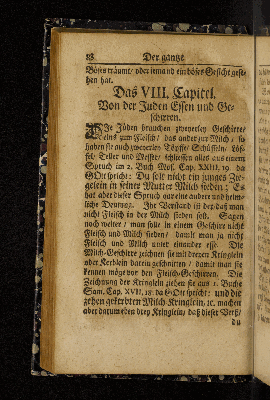 88 Der gantze
Böses träumt/ oder iemand ein böses Gesicht gese-
hen hat.
Das VIII. Capitel.
Von der Juden Essen und Ge-
schirren.
Die Juden brauchen zweyerley Geschirre/
eins zum Fleisch/ das ander zur Milch/ so
haben sie auch zweyerley Töpffe/ Schüsseln/ Löf-
fel/ Teller und Messer/ schliessen alles aus einem
Spruch im 2. Buch Mos. Cap. XXIII, 19. da
GOtt spricht: Du solt nicht ein junges Zie-
gelein in seiner Mutter Milch sieden; Es
hat aber dieser Spruch gar eine andere und heim-
liche Deutung. Ihr Verstand ist der/ daß man
nicht Fleisch in der Milch sieden soll. Sagen
noch weiter/ man solle in einem Geschirr nicht
Fleisch und Milch sieden/ damit man ja nicht
Fleisch und Milch unter einander esse. Die
Milch-Geschirre zeichnen sie mit dreyen Kringlein
oder Kerblein darein geschnitten/ damit man sie
kennen möge vor den Fleisch-Geschirren. Die
Zeichnung der Kringlein ziehen sie aus 1. Buch
Sam. Cap. XVII, 18. da GOtt spricht: und die
zehen gekerbten Milch Kringlein, ꝛc. machen
aber darum eben drey Kringlein/ daß dieser Verß/
du